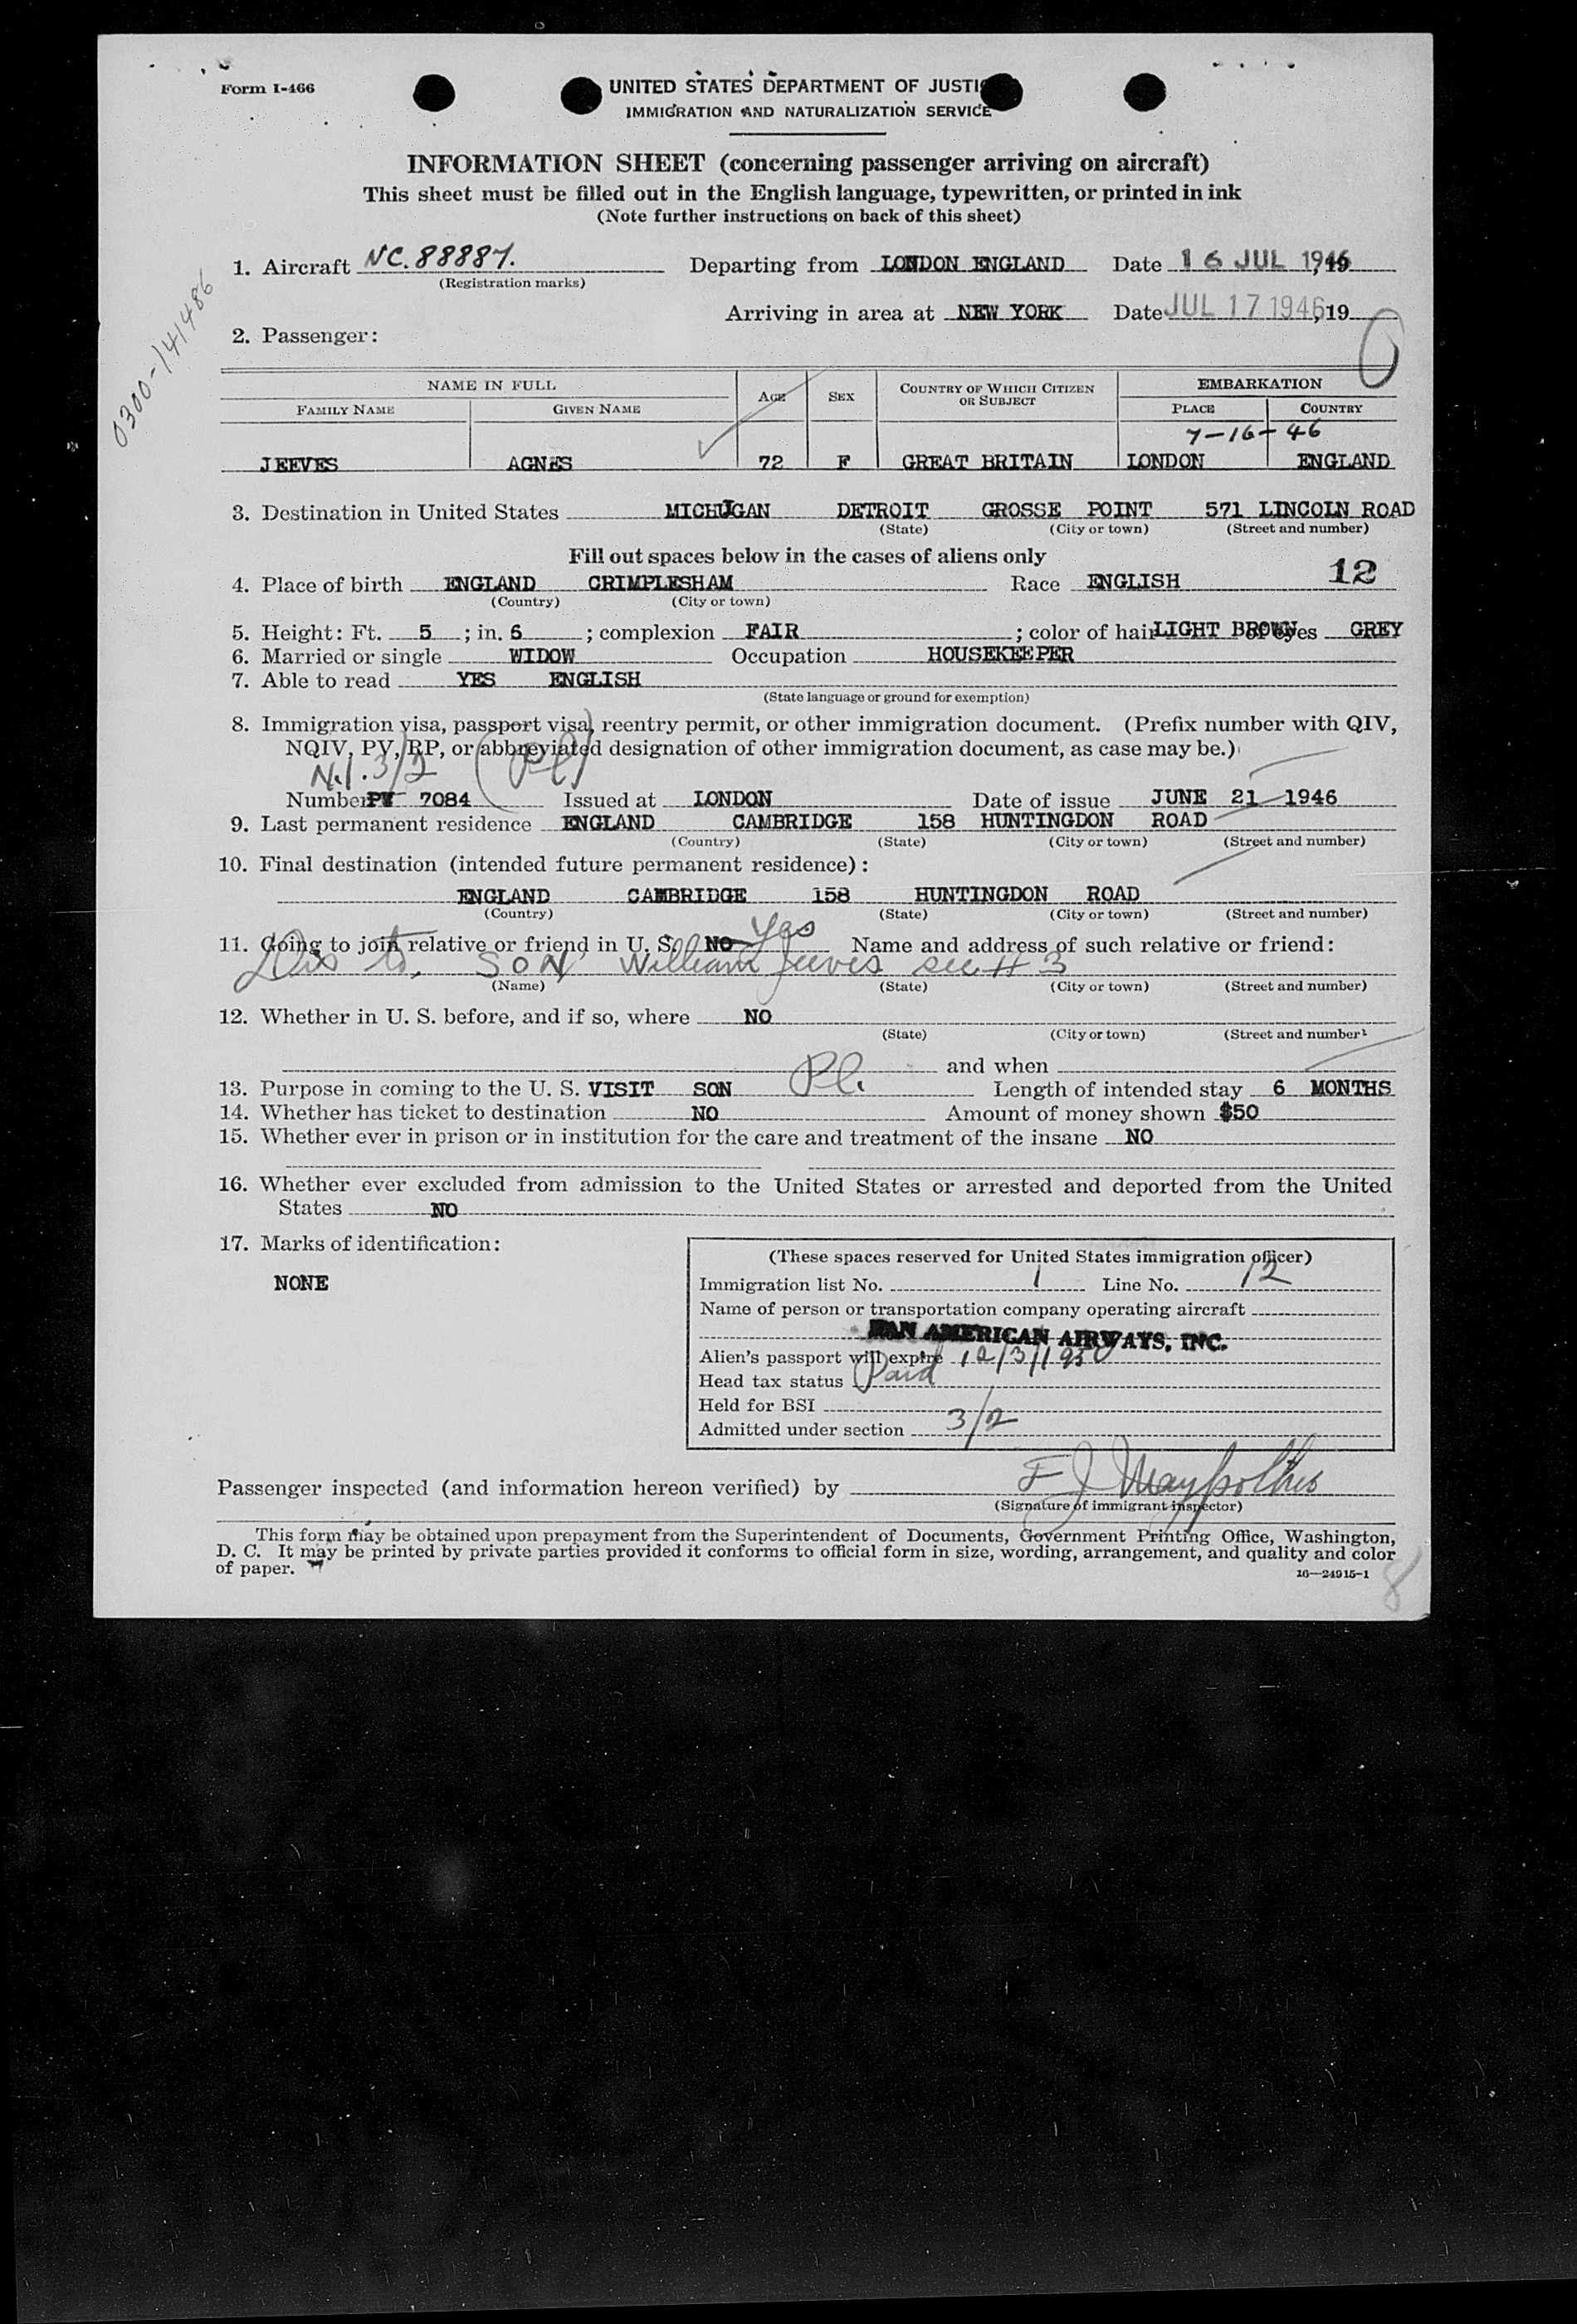 Form I-466
UNITED STATES DEPARTMENT OF JUSTI
IMMIGRATION AND NATURALIZATION SERVICE
INFORMATION SHEET (concerning passenger arriving on aircraft)
This sheet must be filled out in the English language, typewritten, or printed in ink
(Note further instructions on back of this sheet)
1. Aircraft NC. 88887. Departing from LONDON ENGLAND Date 16 JUL 1946
(Registration marks)
Arriving in area at NEW YORK Date JUL 17 1946, 19
0300-141486
2. Passenger:
NAME IN FULL AGE SEX COUNTRY OF WHICH CITIZEN OR SUBJECT EMBARKATION
FAMILY NAME GIVEN NAME PLACE COUNTRY
7-16-46
JEEVES AGNES 72 F GREAT BRITAIN LONDON ENGLAND
3. Destination in United States MICHIGAN DETROIT GROSSE POINT 571 LINCOLN ROAD
(State) (City or town) (Street and number)
Fill out spaces below in the cases of aliens only
12
4. Place of birth ENGLAND CRIMPLESHAM Race ENGLISH
(Country) (City or town)
5. Height: Ft. 5 ; in. 6 ; complexion FAIR ; color of hair LIGHT BROWN of eyes GREY
6. Married or single WIDOW Occupation HOUSEKEEPER
7. Able to read YES ENGLISH
(State language or ground for exemption)
8. Immigration visa, passport visa, reentry permit, or other immigration document. (Prefix number with QIV,
NQIV, PV, RP, or abbreviated designation of other immigration document, as case may be.)
N.I. 3/2 (Pl)
Number PV 7084 Issued at LONDON Date of issue JUNE 21 1946
9. Last permanent residence ENGLAND CAMBRIDGE 158 HUNTINGDON ROAD
(Country) (State) (City or town) (Street and number)
10. Final destination (intended future permanent residence):
ENGLAND CAMBRIDGE 158 HUNTINGDON ROAD
(Country) (State) (City or town) (Street and number)
11. Going to join relative or friend in U. S. NO Yes Name and address of such relative or friend:
Des to, SON William Jeeves see # 3
(Name) (State) (City or town) (Street and number)
12. Whether in U. S. before, and if so, where NO
(State) (City or town) (Street and number)
and when
13. Purpose in coming to the U. S. VISIT SON Pl. Length of intended stay 6 MONTHS
14. Whether has ticket to destination NO Amount of money shown $50
15. Whether ever in prison or in institution for the care and treatment of the insane NO
16. Whether ever excluded from admission to the United States or arrested and deported from the United
States NO
17. Marks of identification:
NONE
(These spaces reserved for United States immigration officer)
Immigration list No. 1 Line No. 12
Name of person or transportation company operating aircraft
PAN AMERICAN AIRWAYS, INC.
Alien's passport will expire 12/3/1950
Head tax status Paid
Held for BSI
Admitted under section 3/2
Passenger inspected (and information hereon verified) by F J
(Signature of immigrant inspector)
This form may be obtained upon prepayment from the Superintendent of Documents, Government Printing Office, Washington,
D. C. It may be printed by private parties provided it conforms to official form in size, wording, arrangement, and quality and color
of paper.
16—24915-1
8